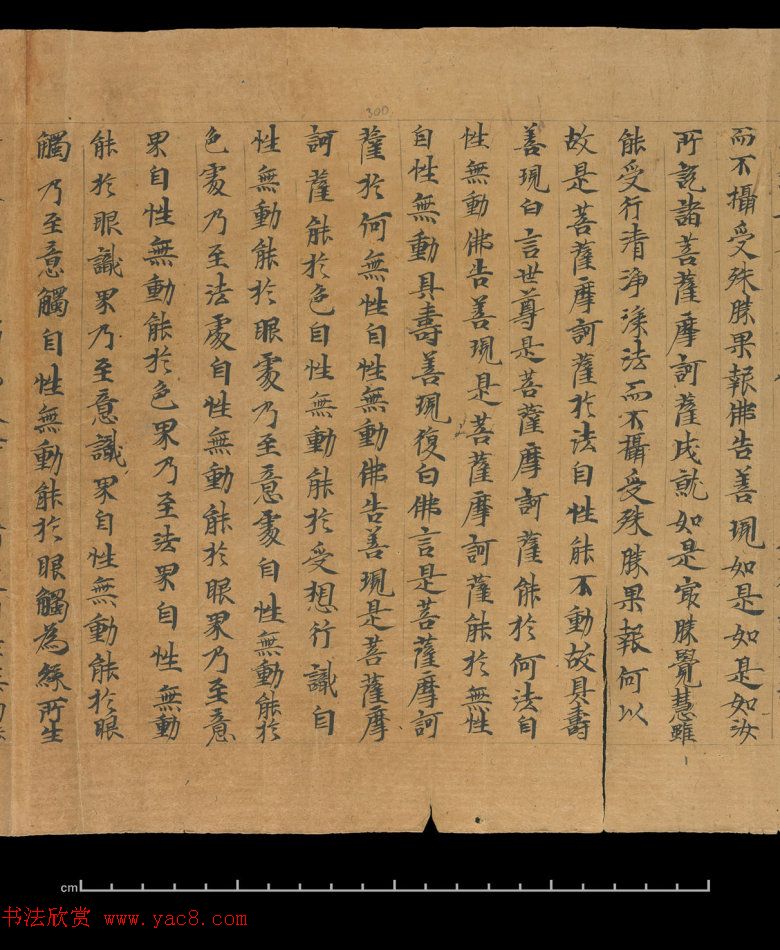 而不攝受殊勝果報佛告善現如是如是如汝
所說諸菩薩摩訶薩成就如是最勝覺慧雖
能受行清淨深法而不攝受殊勝果報何以
故是菩薩摩訶薩於法自性能不動故具壽
善現白言世尊是菩薩摩訶薩能於何法自
性無動佛告善現是菩薩摩訶薩能於無性
自性無動具壽善現復白佛言是菩薩摩訶
薩於何無性自性無動佛告善現是菩薩摩
訶薩能於色自性無動能於受想行識自
性無動能於眼處乃至意處自性無動能於
色處乃至法處自性無動能於眼界乃至意
界自性無動能於色界乃至法界自性無動
能於眼識界乃至意識界自性無動能於眼
觸乃至意觸自性無動能於眼觸為緣所生
300
cm
书法欣赏 www.yac8.com